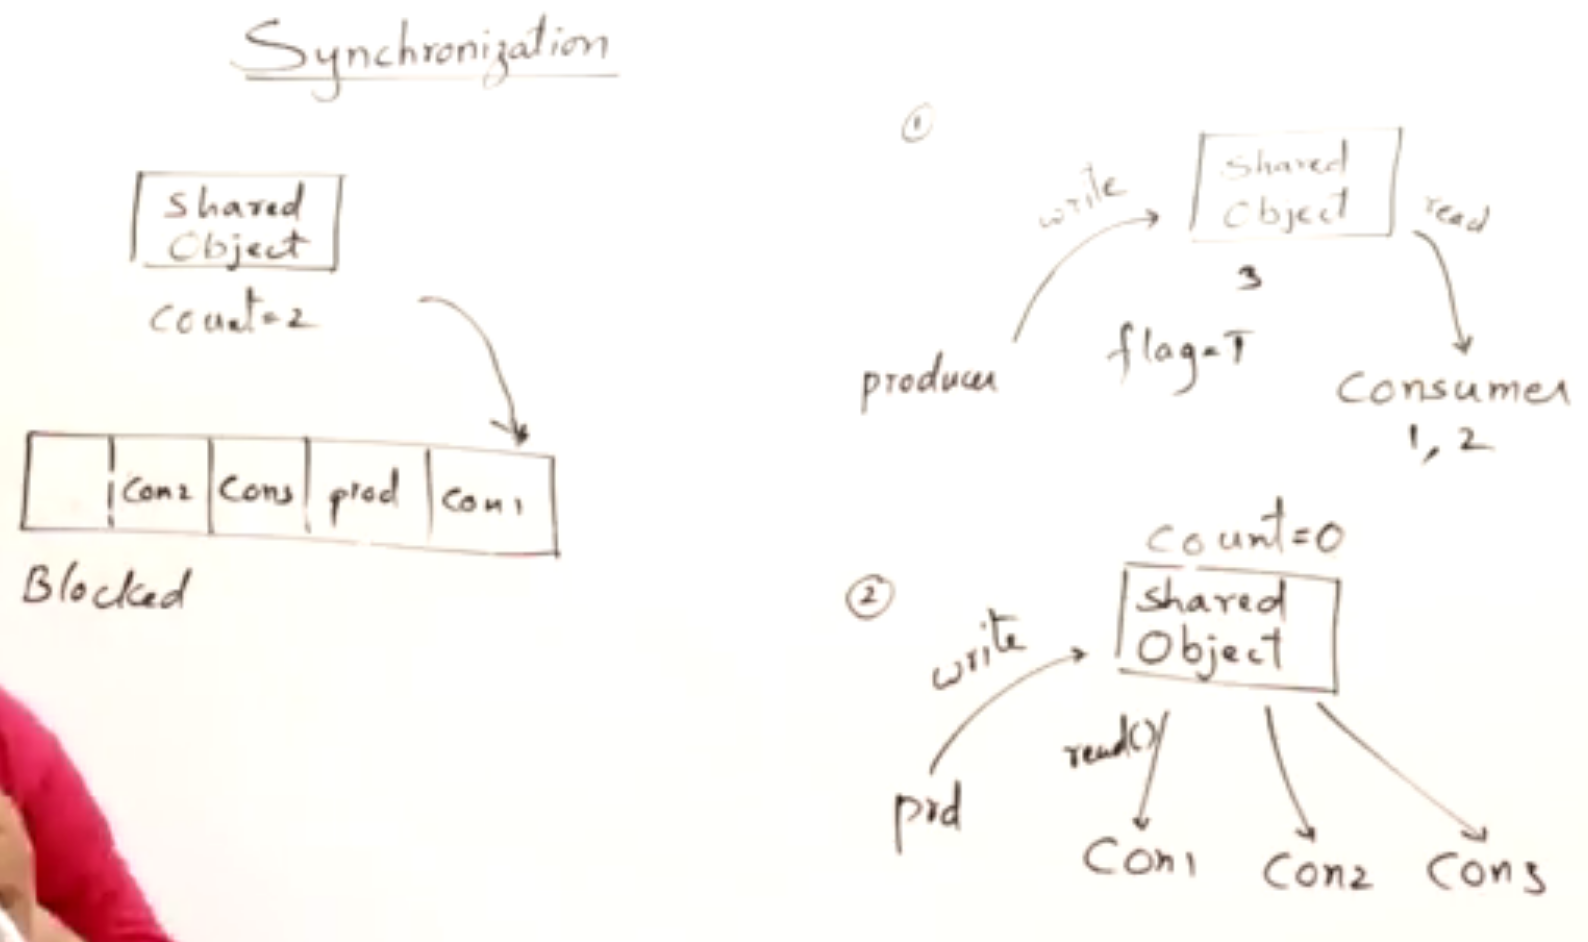 Synchronization
Shared
Object
Count=2
Con2 Con3 prod Con1
Blocked
1
write
Shared
Object
read
3
flag=T
producer
Consumer
1, 2
2
Count=0
write
Shared
Object
read()
prd
Con1 Con2 Con3